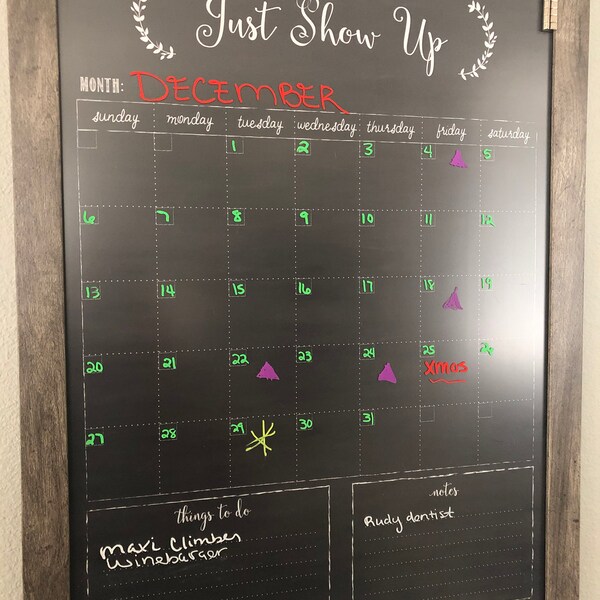 Just Show Up
MONTH: DECEMBER
sunday monday tuesday wednesday thursday friday saturday
1 2 3 4 5
6 7 8 9 10 11 12
13 14 15 16 17 18 19
20 21 22 23 24 25 26
Xmas
27 28 29 30 31
things to do
Maxi Climber
Winebarger
notes
Rudy dentist